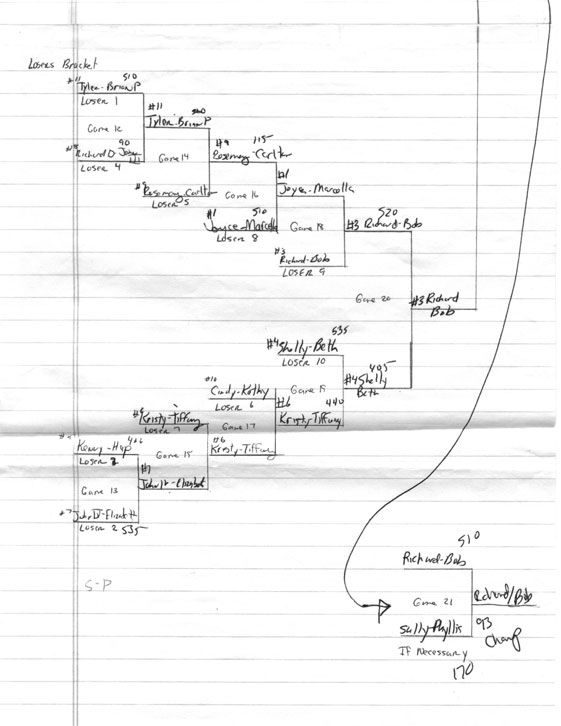 Losers Bracket
#11
510
Tyler-Brian P
Loser 1
Game 12
#11
Tyler-Brian P
90
Richard D
Loser 4
Game 14
#9
115
Rosemary-Carlton
#9
Rosemary Carlton
Loser 5
Game 16
#1
Joyce-Marcella
#1
510
Joyce-Marcella
Loser 8
Game 18
520
#3 Richard-Bob
#3
Richard-Bob
Loser 9
Game 20
#3 Richard
Bob
535
#4 Shelly-Beth
Loser 10
Game 19
405
#4 Shelly
Beth
#10
Cindy-Kathy
Loser 6
#6
440
Kristy Tiffany
Game 17
Kristy-Tiffany
Loser 7
#6
Kristy-Tiffany
Kenny-Hap
Loser 3
Game 15
#7
Game 13
#7
Loser 2
535
S-P
510
Richard-Bob
Game 21
Richard/Bob
Sally-Phyllis
93
Champ
If Necessary
170